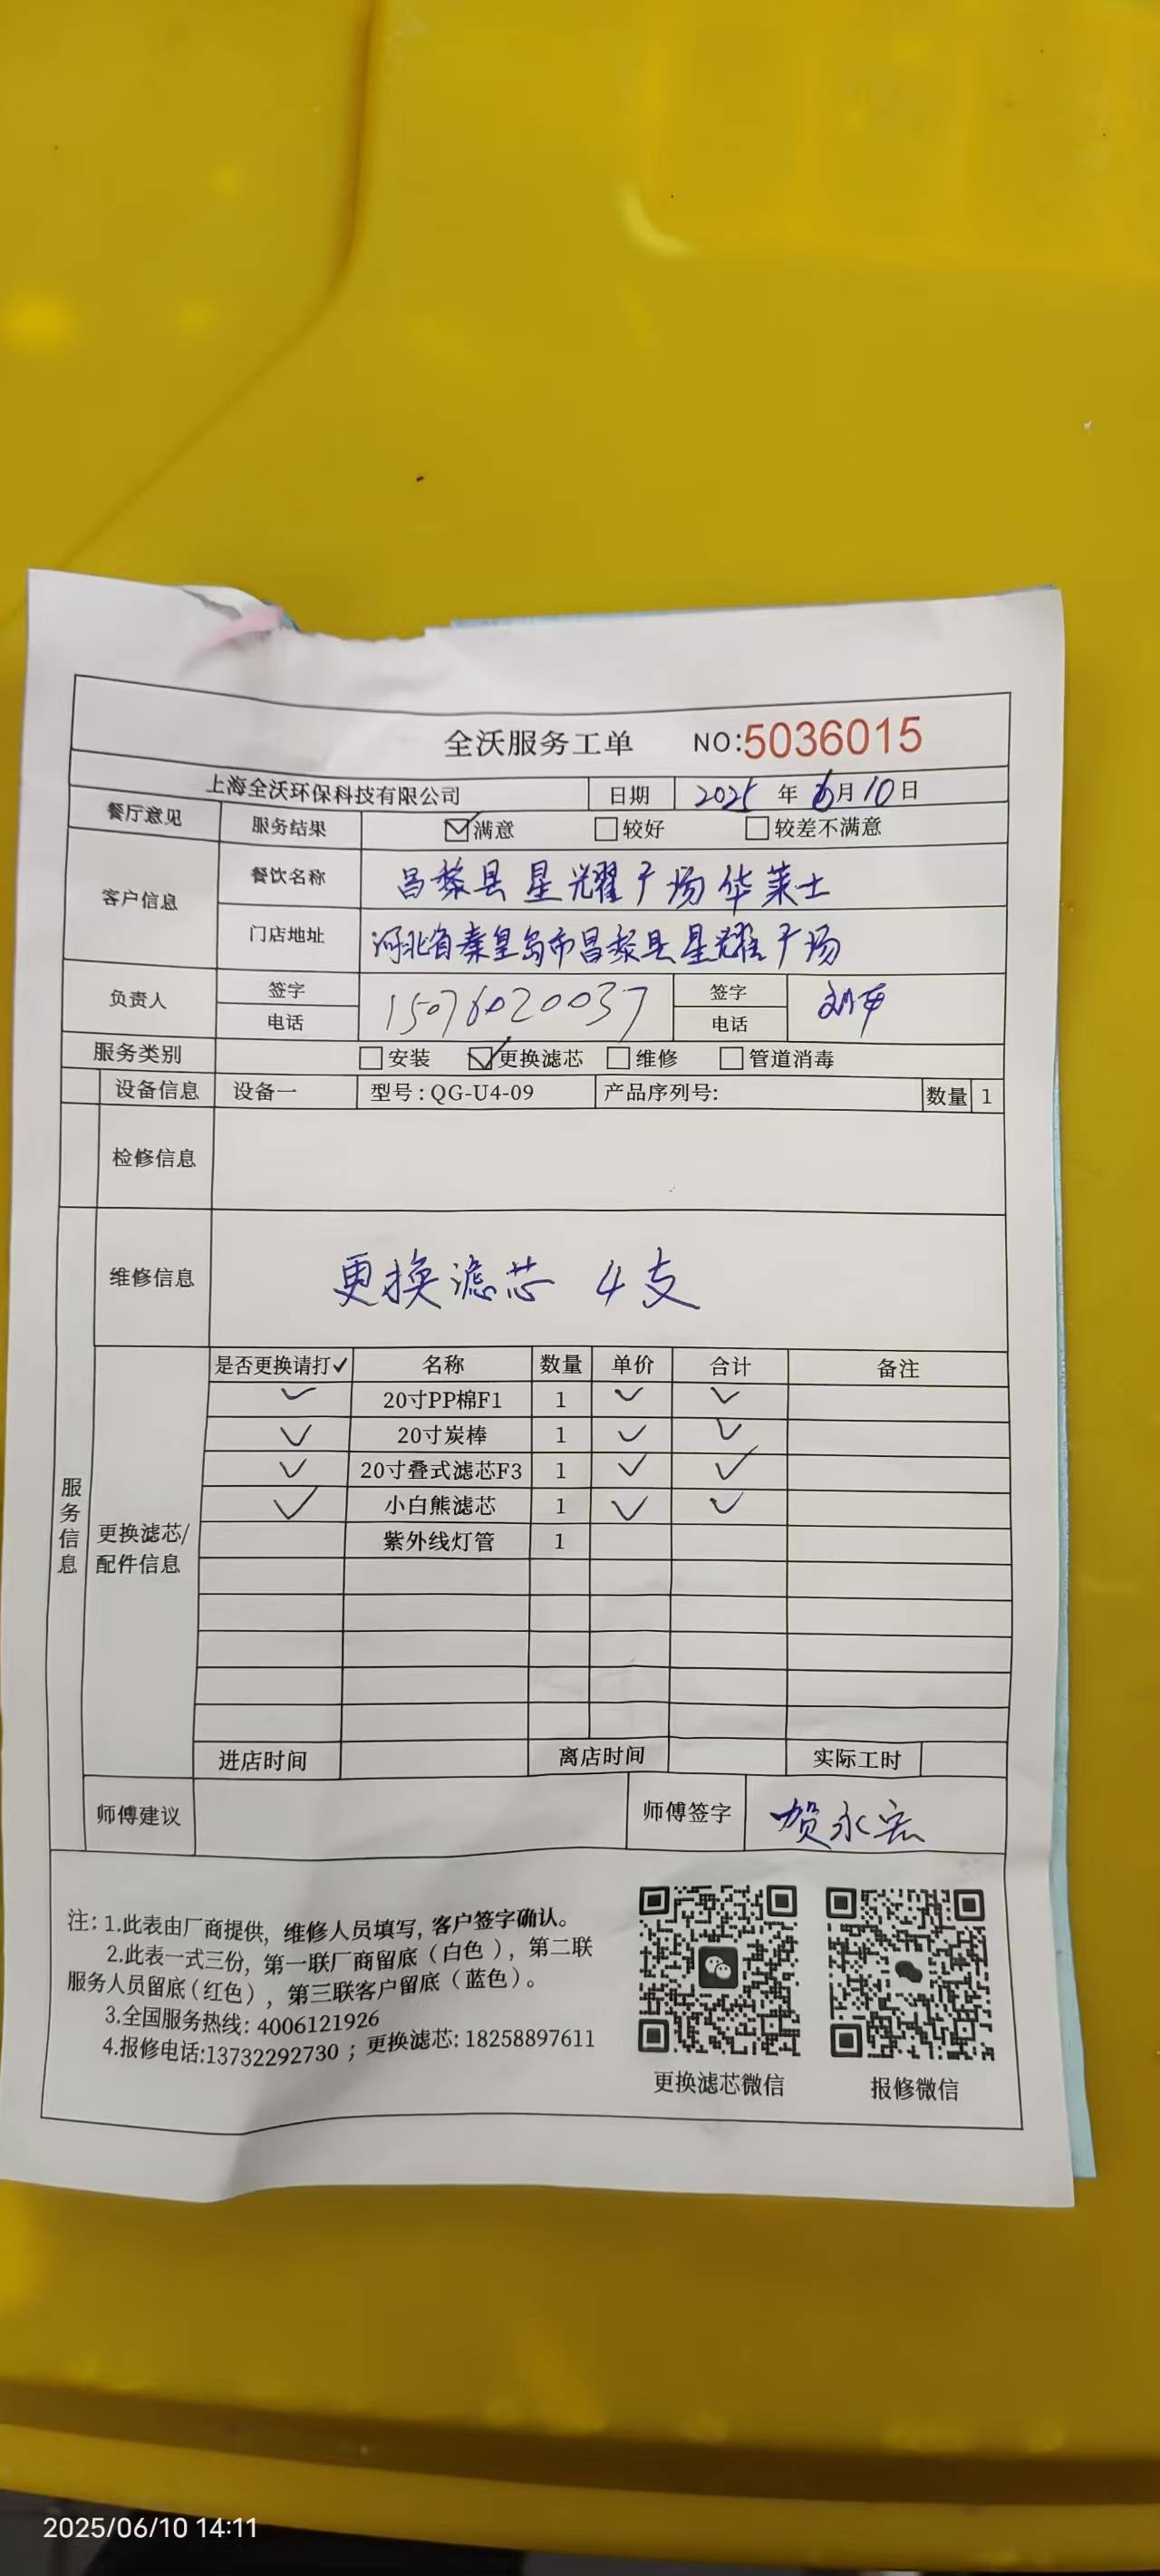 全沃服务工单 NO:5036015
上海全沃环保科技有限公司 日期 2025 年 6月 10 日
餐厅意见 服务结果 满意 较好 较差不满意
客户信息
餐饮名称 昌黎县星光耀广场华莱士
门店地址 河北省秦皇岛市昌黎县星光耀广场
负责人 签字 签字
电话 15076020037 电话
服务类别 安装 更换滤芯 维修 管道消毒
设备信息 设备一 型号:QG-U4-09 产品序列号: 数量 1
检修信息
维修信息 更换滤芯 4支
服务信息
更换滤芯/
配件信息
是否更换请打✓ 名称 数量 单价 合计 备注
✓ 20寸PP棉F1 1 ✓ ✓
✓ 20寸炭棒 1 ✓ ✓
✓ 20寸叠式滤芯F3 1 ✓ ✓
✓ 小白熊滤芯 1 ✓ ✓
紫外线灯管 1
进店时间 离店时间 实际工时
师傅建议 师傅签字 贺永宏
注: 1.此表由厂商提供, 维修人员填写, 客户签字确认。
2.此表一式三份, 第一联厂商留底（白色）, 第二联
服务人员留底(红色), 第三联客户留底（蓝色）。
3.全国服务热线: 4006121926
4.报修电话:13732292730 ; 更换滤芯: 18258897611
更换滤芯微信 报修微信
2025/06/10 14:11